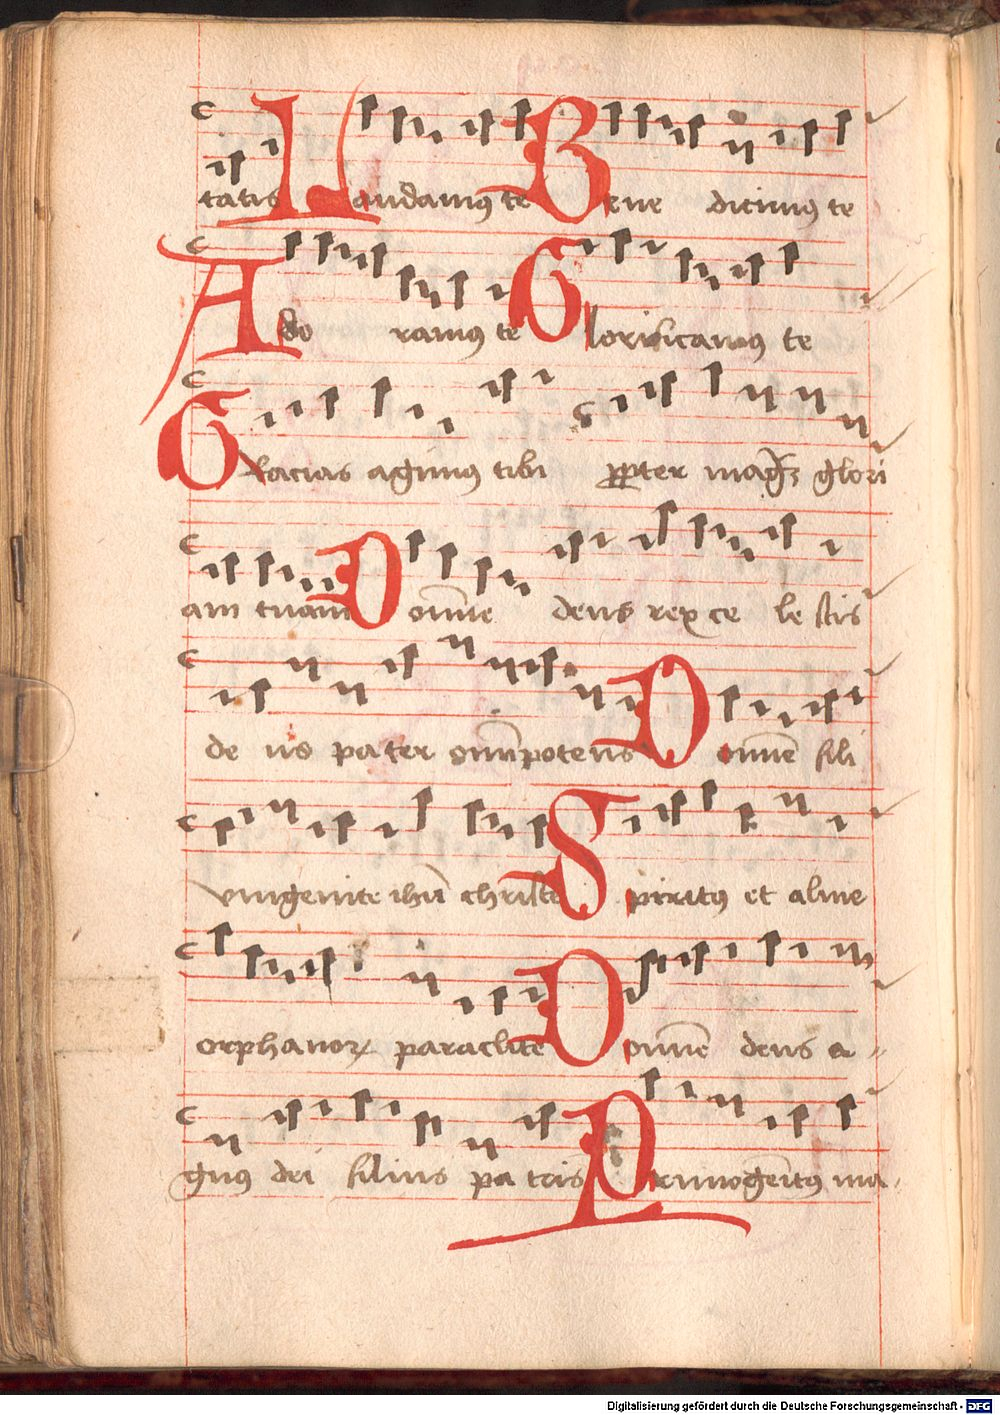 tatis Laudamus te Bene dicimus te
Ado ramus te Glorificamus te
Gracias agimus tibi ꝓpter magᷓꝫ glori
am tuam Domīe deus rex ce le stis
de us pa ter om̄ipotens Domīe fili
vnigenite ihū christe Spiritus et alme
orphanoꝝ paraclite Domīe deus a-
gnus dei filius pa tris Primogēitus ma-
Digitalisierung gefördert durch die Deutsche Forschungsgemeinschaft - DFG